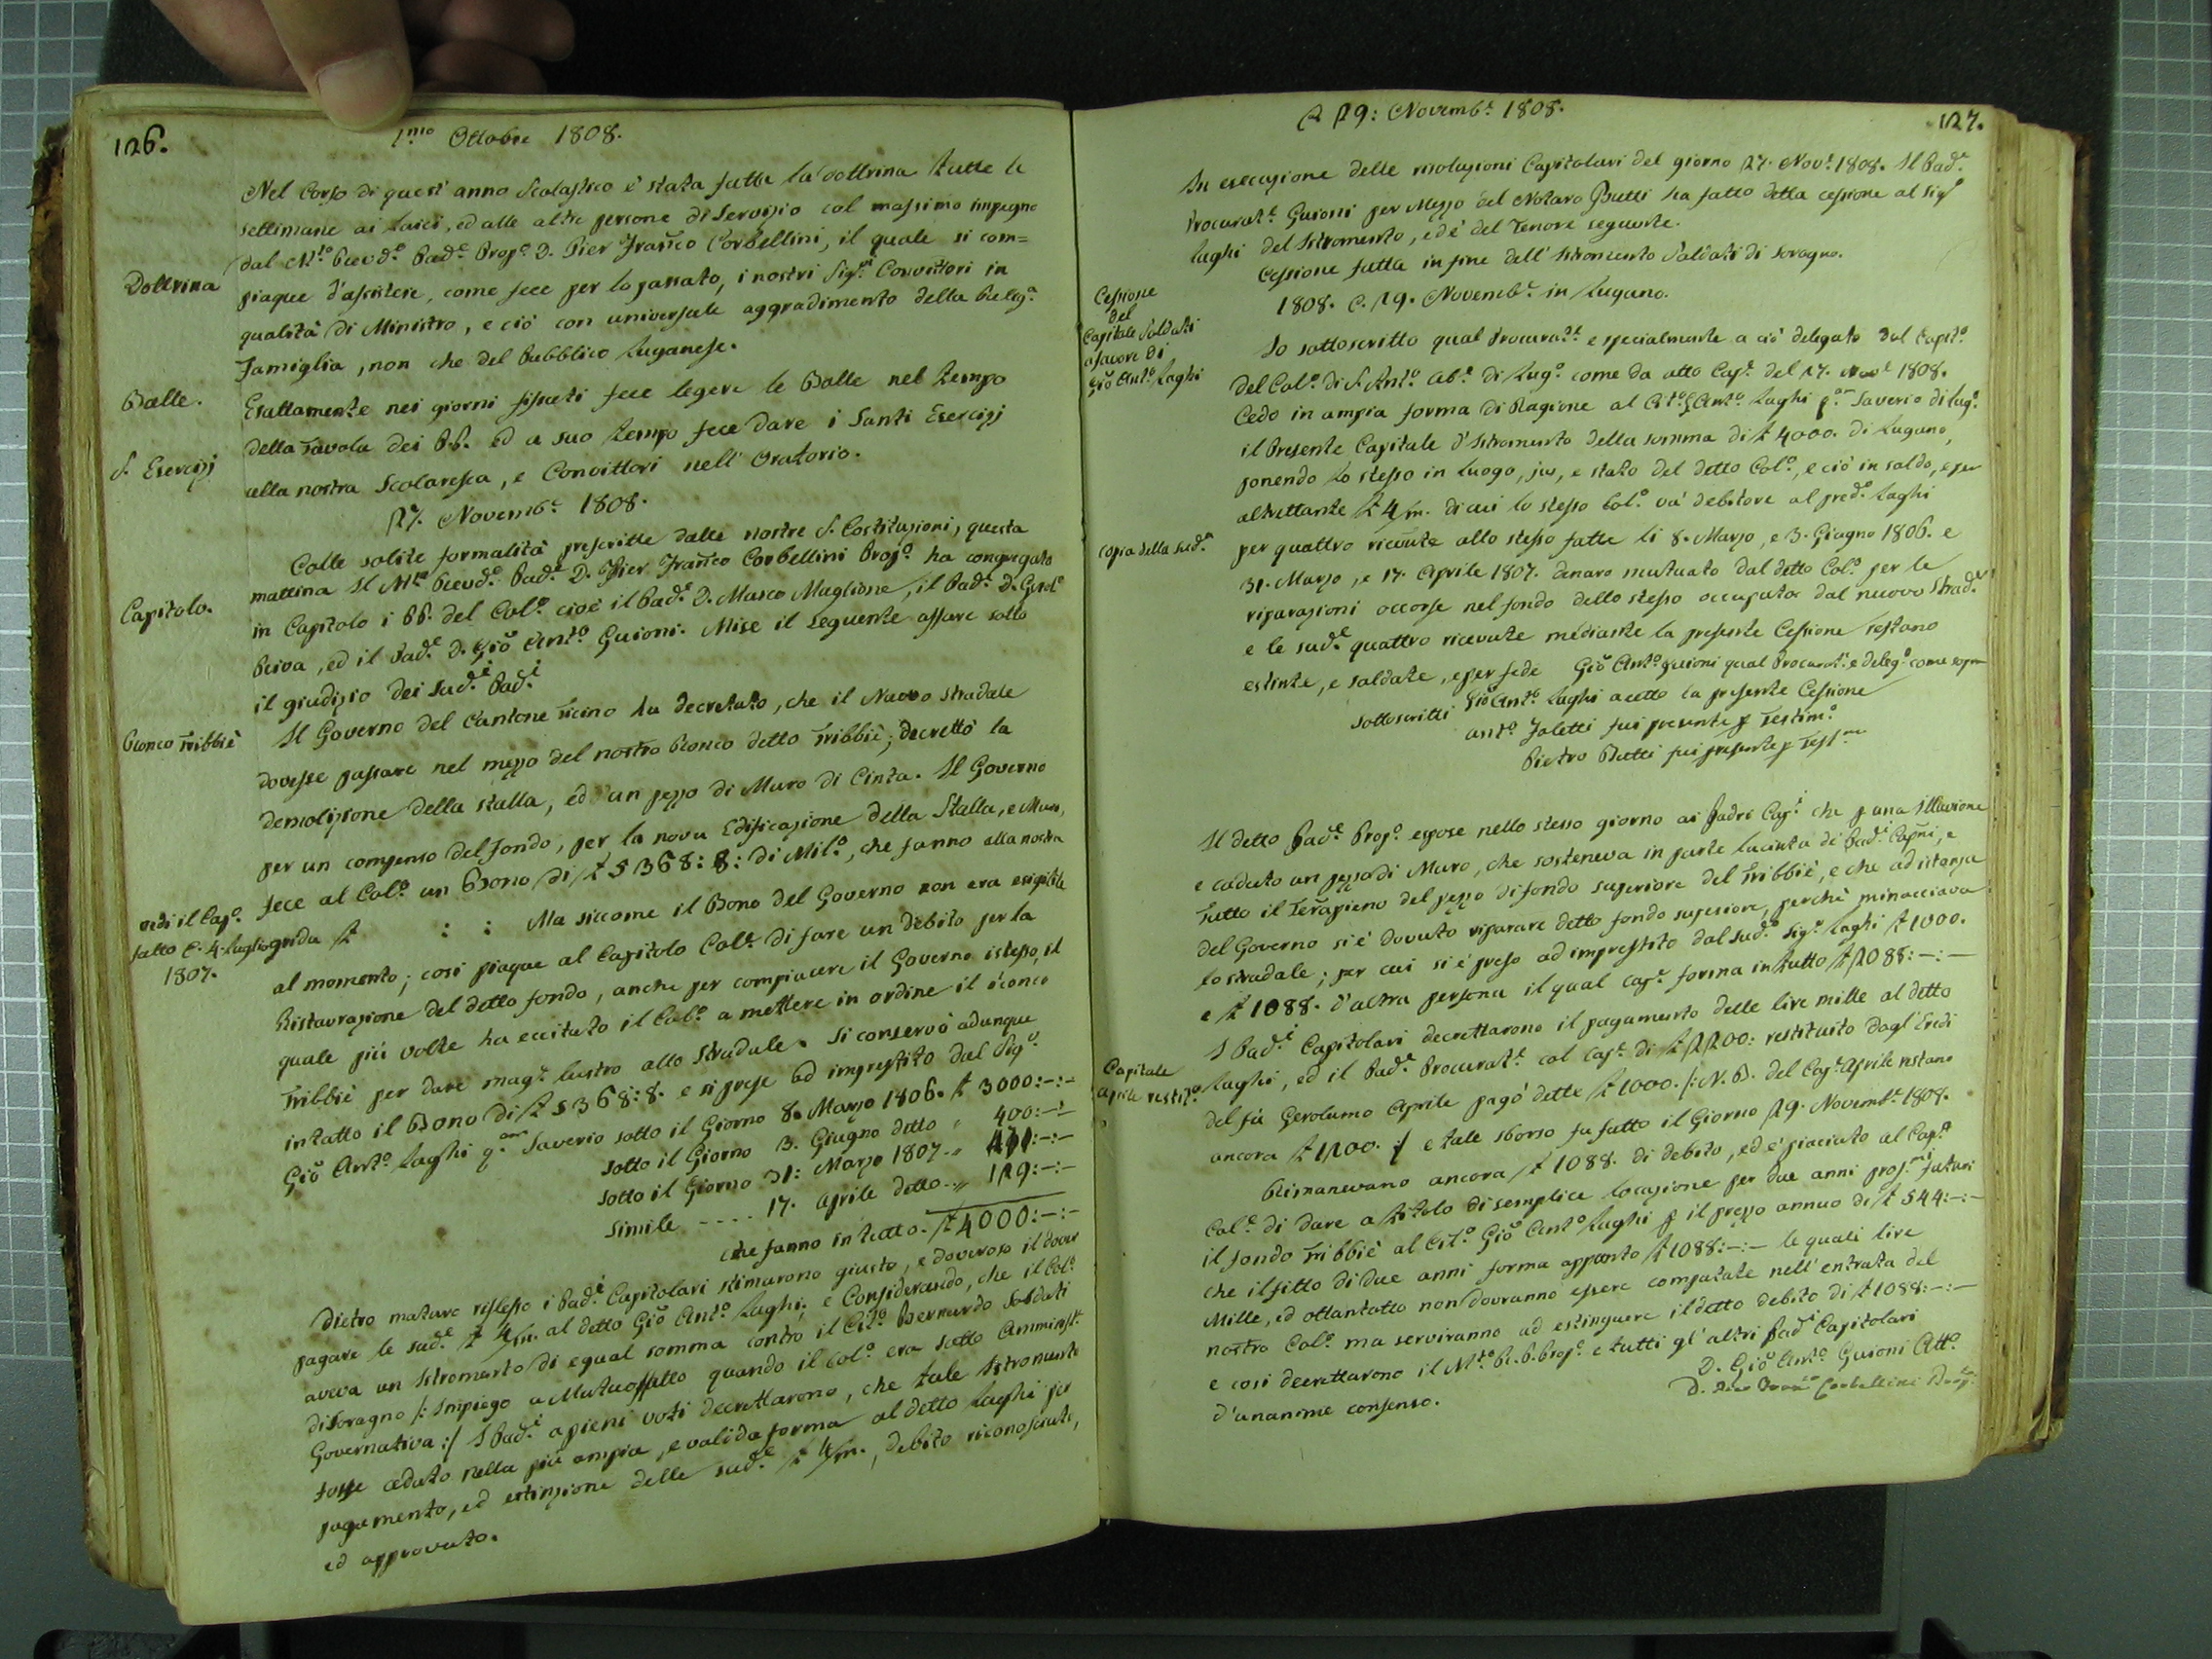 126.
1.mo Ottobre 1808.
Nel Corso di quest' anno Scolastico è stata fatta la dottrina tutte le
settimane ai Laici, ed alle altre persone di Servizio col massimo impegno
dal M.to Revd.o Pad.e Prop.o D. Pier Fran.co Corbellini, il quale si com=
Dottrina
piaque d'assistere, come fece per lo passato, i nostri Sig.ri Convittori in
qualità di Ministro, e ciò con universale aggradimento della Relig.a
Famiglia, non che del Pubblico Luganese.
Bolle.
Esattamente nei giorni fissati fece legere le Bolle nel tempo
della Tavola dei PP. ed a suo tempo fece dare i Santi Esercizj
S. Esercizj
alla nostra Scolaresca, e Convittori nell' Oratorio.
27. Novemb.e 1808.
Colle solite formalità prescritte dalle nostre S. Costituzioni, questa
mattina Il M.to Revd.o Pad.e D. Pier Fran.co Corbellini Prop.o ha congregato
Capitolo.
in Capitolo i PP. del Col.o cioè il Pad.e D. Marco Maglione, il Pad.e D. Girol.o
Riva, ed il Pad.e D. Gio Ant.o Guioni. Mise il seguente affare sotto
il giudizio dei Sud.i Pad.i
Ronco Tribbiè
Il Governo del Cantone Ticino ha decretato, che il Nuovo stradale
dovesse passare nel mezzo del nostro Ronco detto Tribbiè; decrettò la
demolizione della stalla, ed un pezzo di Muro di Cinta. Il Governo
per un compenso del fondo, per la nova Edificazione della Stalla, e Muro,
fece al Col.o un Bono di £ 5368:8: di Mil.o, che fanno alla nostra
vedi il Cap.o
fatto C. 4. Luglio
1807.
grida £ : : Ma siccome il Bono del Governo non era esigibile
al momento; cosi piaque al Capitolo Coll.e di fare un debito per la
Ristaurazione del detto fondo, anche per compiacere il Governo istesso, il
quale più volte ha eccitato il Col.o a mettere in ordine il ronco
Tribbiè per dare mag.r lustro allo stradale. Si conservò adunque
intatto il Bono di £ 5368:8. e si prese ad imprestito dal Sig.r
Gio Ant.o Laghi q.am Saverio sotto il Giorno 8. Marzo 1806. £ 3000:-:-
sotto il Giorno 3. Giugno detto " 400:-:-
sotto il Giorno 31: Marzo 1807. " 471:-:-
Simile - - - - 17. Aprile detto.. " 129:-:-
che fanno in tutto. £ 4000:-:-
Dietro mature riflesso i Pad.i Capitolari stimarono giusto, e doveroso il dover
pagare le sud.e £ 4/m. al detto Gio Ant.o Laghi; e Considerando, che il Col.o
aveva un Istromento di egual somma contro il Cit.o Bernardo Soldati
di Soragno /: Impiego a Mutuo fatto quando il Col.o era sotto Amminist.e
Governativa :/ I Pad.i a pieni voti decrettarono, che tale Istromento
fosse ceduto nella più ampia, e valida forma al detto Laghi per
pagamento, ed estinzione delle sud.e £ 4/m., debito riconosciuto,
ed approvato.
C 29: Novemb.e 1808.
127.
In esecuzione delle risoluzioni Capitolari del giorno 27. Nov.e 1808. Il Pad.e
Procurat.e Guioni per Mezzo del Notaro Butti ha fatto detta cessione al Sig.r
Laghi del Istromento, ed è del Tenore seguente.
Cessione fatta in fine dell' Istromento Soldati di Soragno.
Cessione
del
Capitale Soldati
a favore di
Gio Ant.o Laghi
1808. C. 29. Novemb.e in Lugano.
Io sottoscritto qual Procurat.e e specialmente a ciò delegato dal Capit.o
del Col.o di S. Ant.o Ab.e di Lug.o come da atto Cap.e del 27. Nov.e 1808.
Cedo in ampia forma di Ragione al Cit.o G. Ant.o Laghi q.m Saverio di Lug.o
il Presente Capitale d'Istromento della somma di £ 4000. di Lugano,
ponendo lo stesso in luogo, jus, e stato del detto Col.o, e ciò in saldo, e per
altrettante £ 4/m. di cui lo stesso Col.o va' debitore al pred.o Laghi
copia della sud.a
per quattro ricevute allo stesso fatte li 8. Marzo, e 3. Giugno 1806. e
31. Marzo, e 17. Aprile 1807. denaro mutuato dal detto Col.o per le
riparazioni occorse nel fondo dello stesso occupato dal nuovo Strad.e
e le sud.e quattro ricevute mediante la presente Cessione restano
estinte, e saldate, e per fede Gio Ant.o Guioni qual Procurat.e e deleg.o come sopra
sottoscritti Gio Ant.o Laghi acetto la presente Cessione
Ant.o Foletti fui presente p Testim.o
Pietro Butti fui presente p Test.m
Il detto Pad.e Prop.o espose nello stesso giorno ai Padri Cap.i che p una Illuvione
e caduto un pezzo di Muro, che sosteneva in parte la cinta di Pad.i Capñi, e
tutto il Terapieno del pezzo di fondo superiore del Tribbiè, e che ad istanza
del Governo si è dovuto riparare detto fondo superiore, perchè minacciava
lo stradale; per cui si è preso ad imprestito dal sud.o Sig.r Laghi £ 1000.
e £ 1088. d'altra persona il qual cap.e forma in tutto £ 2088:-:-
I Pad.i Capitolari decrettarono il pagamento delle lire mille al detto
Capitale
Aprile restit.o
Laghi, ed il Pad.e Procurat.e col Cap.e di £ 2200: restituito dagl'Eredi
del fù Gerolamo Aprile pagò dette £ 1000. /: N. B. del Cap.e Aprile restano
ancora £ 1200. :/ e tale sborso fu fatto il Giorno 29. Novemb.e 1808.
Rimanevano ancora £ 1088. di debito, ed è piaciuto al Cap.o
Col.e di dare a titolo di semplice locazione per due anni pros.mi futuri
il fondo Tribbiè al Cit.o Gio Ant.o Laghi p il prezzo annuo di £ 544:-:-
che il fitto di due anni forma appunto £ 1088:-:- le quali lire
Mille, ed ottantotto non dovranno essere computate nell'entrata del
nostro Col.o ma serviranno ad estinguere il detto debito di £ 1088:-:-
e cosi decrettarono il M.to R. P. Prop.o e tutti gl'altri Pad.i Capitolari
d'unanime consenso.
D. Gio Ant.o Guioni Att.o
D. Pier Fran.co Corbellini Prop.